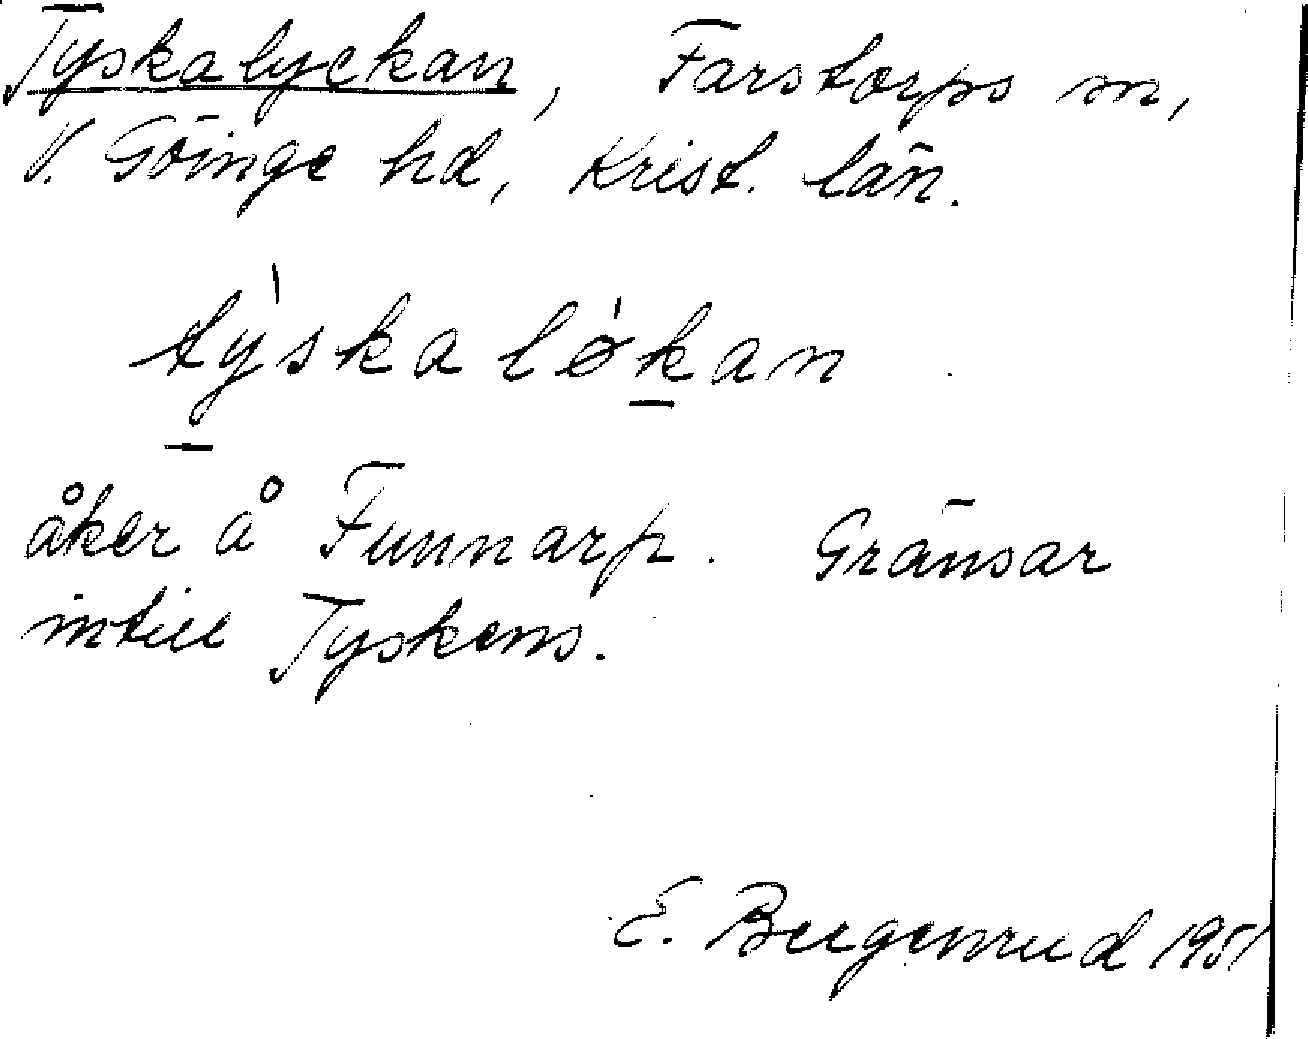 Tyskalyckan, Farstorps sn,
V. Göinge hd, Krist. län.
tỳskaløkan
åker å Funnarp. Gränsar
intill Tyskens.
E. Bergenrud 1951